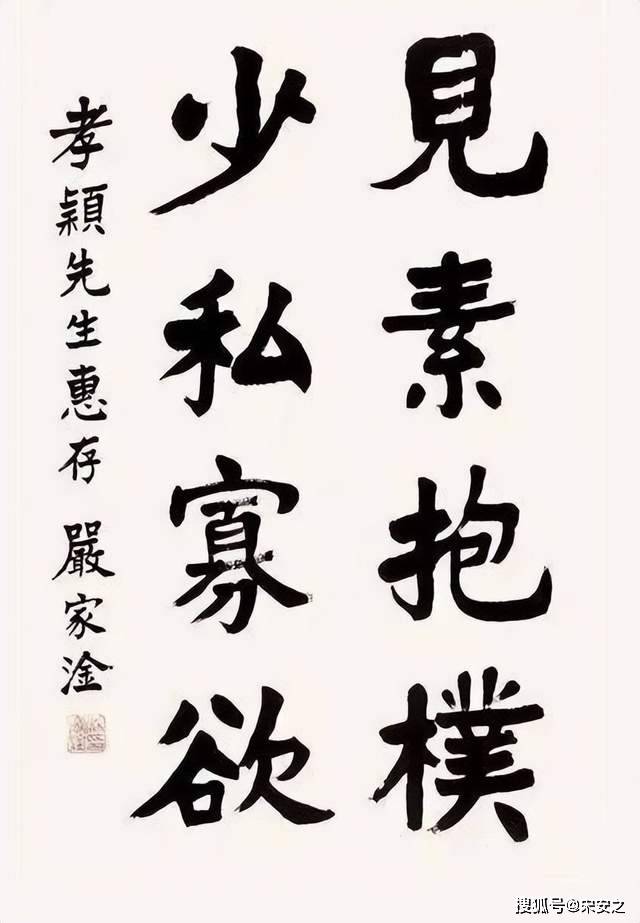 見素抱樸
少私寡欲
孝穎先生惠存 嚴家淦
搜狐号@宋安之